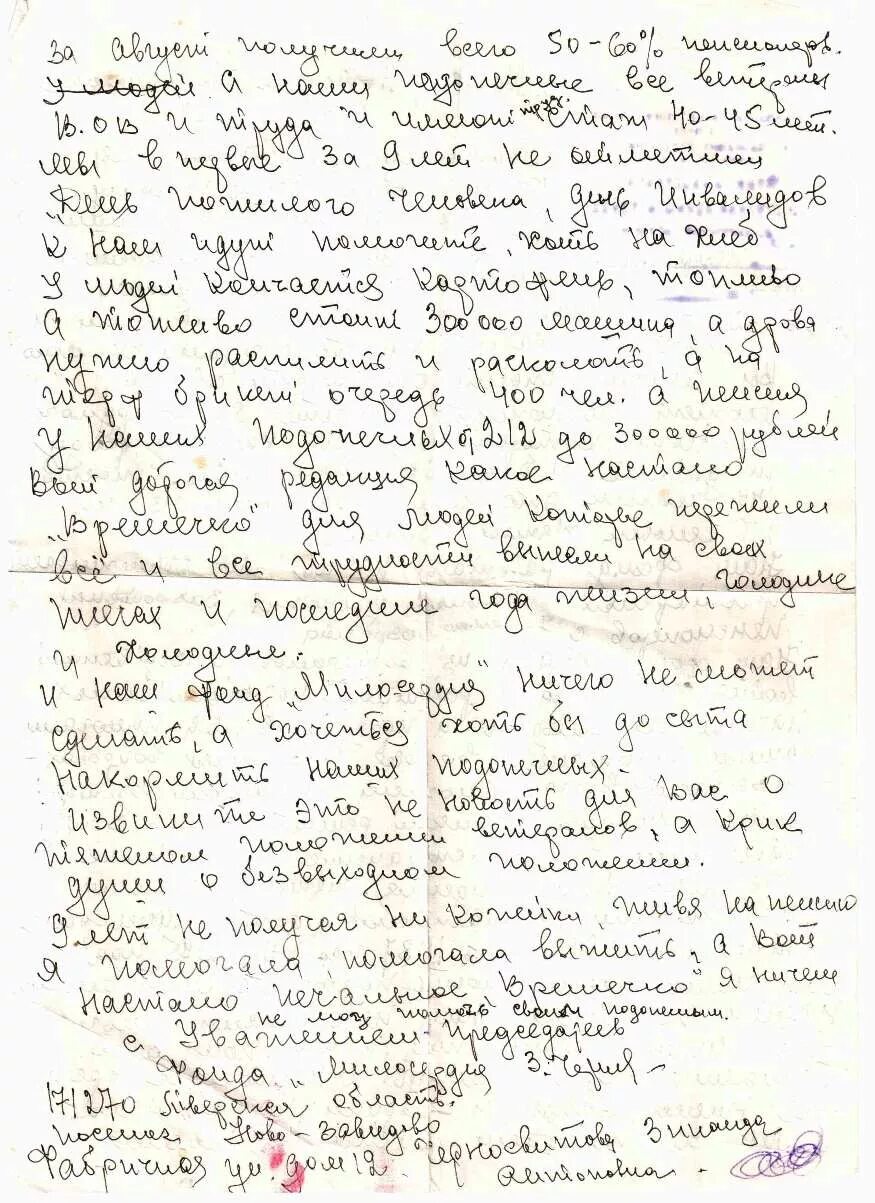 За Август получили всего 50-60% пенсионеров.
У людей А наши подопечные все ветераны
В.ОВ и труда и имеют труд. стаж 40-45 лет.
мы в первые за 9 лет не отметили
„День пожилого человека, день Инвалидов
к нам идут помогите, хоть на хлеб
У людей кончается картофель, топливо
а топливо стоит 300000 машина, а дрова
нужно распилить и расколоть, а на
торф брикет очередь 400 чел. а пенсия
у наших подопечных от 212 до 300000 рублей
Вот дорогая редакция какое настало
„Времечко" для людей которые пережили
всё и все трудности вынесли на своих
плечах и последние года жизни, голодные
и холодные.
и наш фонд „Милосердия" ничего не может
сделать, а хочеться хоть бы до сыта
накормить наших подопечных.
Извините это не новость для вас о
тяжелом положении ветеранов, а крик
души о безвыходном положении.
9 лет не получая ни копейки, живя на пенсию
я помогала, помогала выжить, а вот
настало печальное „Времечко" я ничем
не могу помочь своим подопечным.
с Уважением председатель
фонда „Милосердия З. Черн
171270 Тверская область.
поселок Ново-Завидово
Фабричная ул. дом 12. Черносвитова Зинаида
Антоновна.